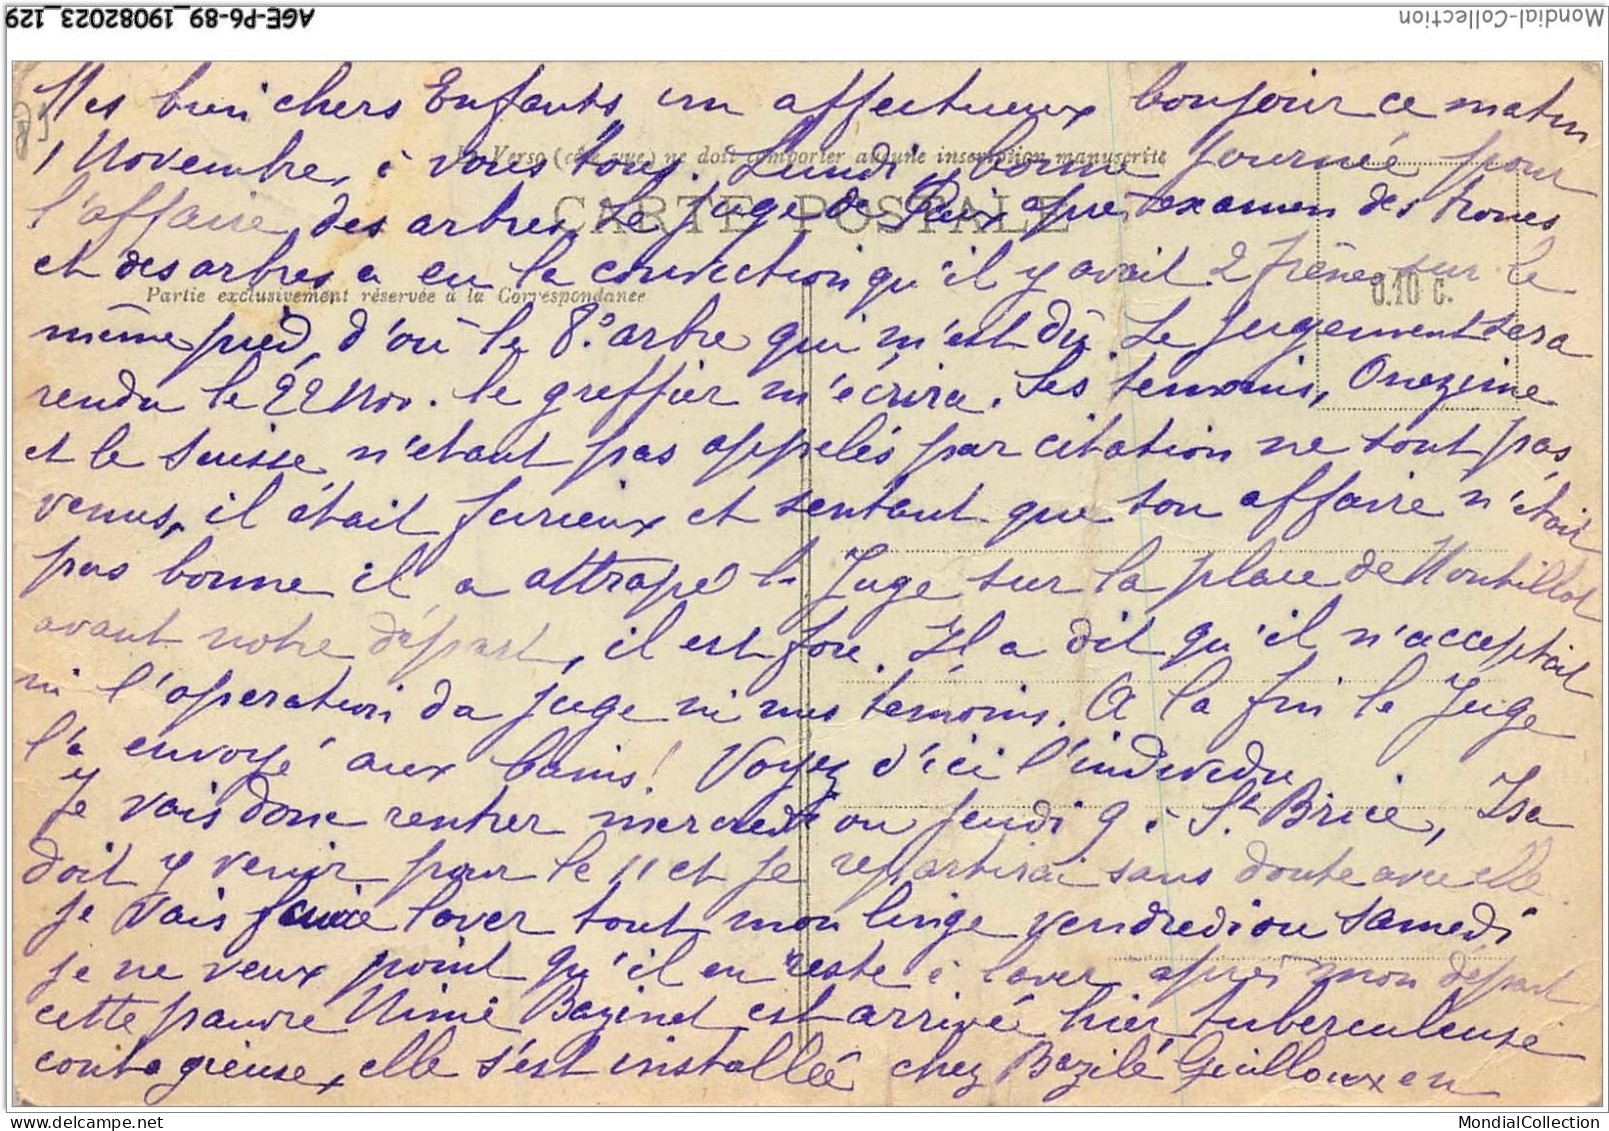 AGE-P6-89_19082023_129
Mondial-Collection
Mes bien chers Enfants, un affectueux bonjour ce matin
1 Novembre, à vous tous. Lundi, bonne journée pour
Le Verso (côté vue) ne doit comporter aucune inscription manuscrite
CARTE POSTALE
l'affaire des arbres, le Juge de Paix après examen des troncs
et des arbres a eu la conviction qu'il y avait 2 frênes sur le
0.10 c.
Partie exclusivement réservée à la Correspondance
même pied, d'où le 8e arbre qui m'est dû. Le jugement sera
rendu le 22 Nov. le greffier m'écrira. Les temoins, Onezime
et le Suisse, n'étant pas appelés par citation ne sont pas
venus, il était furieux et sentant que son affaire n'était
pas bonne il a attrapé le Juge sur la place de Montillot
avant notre départ, il est fou. Il a dit qu'il n'acceptait
ni l'operation da juge ni mes temoins. A la fin le Juge
l'a envoyé aux bains! Voyez d'ici l'individu
Je vais donc rentrer mercredi ou jeudi 9 à St Brice, Isa
doit y venir pour le 11 et je repartirai sans doute avec elle
je vais faire laver tout mon linge vendredi ou Samedi
je ne veux point qu'il en reste à laver après mon départ
cette pauvre Mimie Bazinet est arrivée hier, tuberculeuse
contagieuse, elle s'est installée chez Bazile Guilloux en
MondialCollection